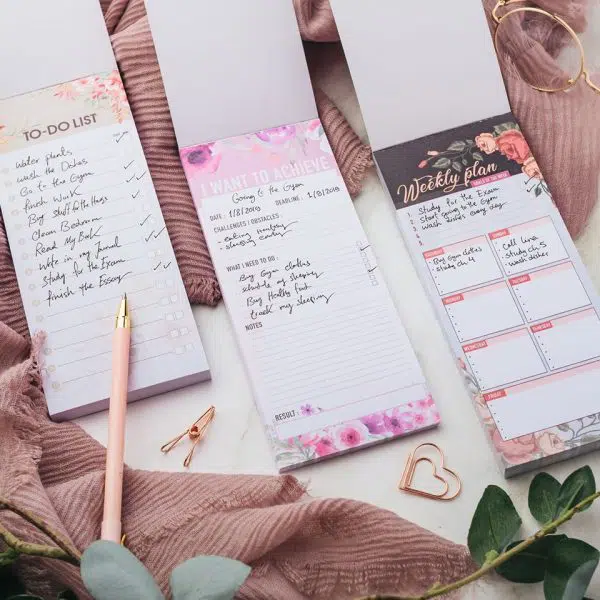 TO-DO LIST
Water plants
wash the Dishes
Go to the Gym
finish Work
Buy stuff for the
Clean Bedroom
Read My Book
Write in my Journal
Study for the Exam
finish the Essay
I WANT TO ACHIEVE
Going to the Gym
DATE: 1/8/2019 DEADLINE: 1/9/2019
CHALLENGES / OBSTACLES
- eating
- sleeping early
WHAT I NEED TO DO:
Buy Gym clothes
schedule my sleeping
Buy Healthy food
track my sleeping
NOTES
RESULT:
Weekly plan
GOALS OF THE WEEK
1. Study for the Exam
2. Start going to the Gym
3. Wash dishes every day
4.
5.
SATURDAY
• Buy Gym clothes
• study ch. 4
SUNDAY
• Call Luna
• study ch. 5
• wash dishes
MONDAY
TUESDAY
WEDNESDAY
THURSDAY
FRIDAY